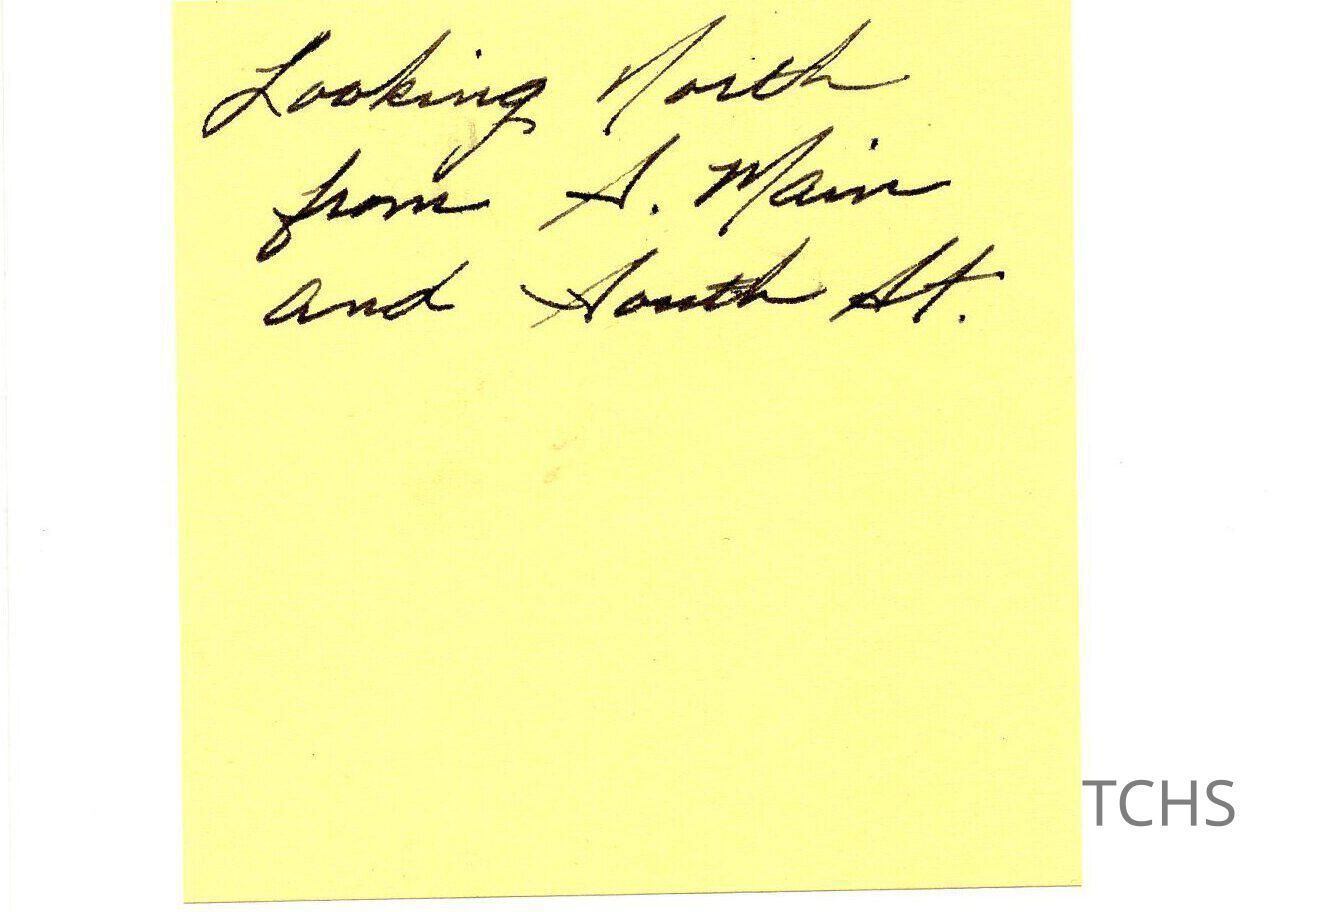 Looking North
from S. Main
and South St.
TCHS